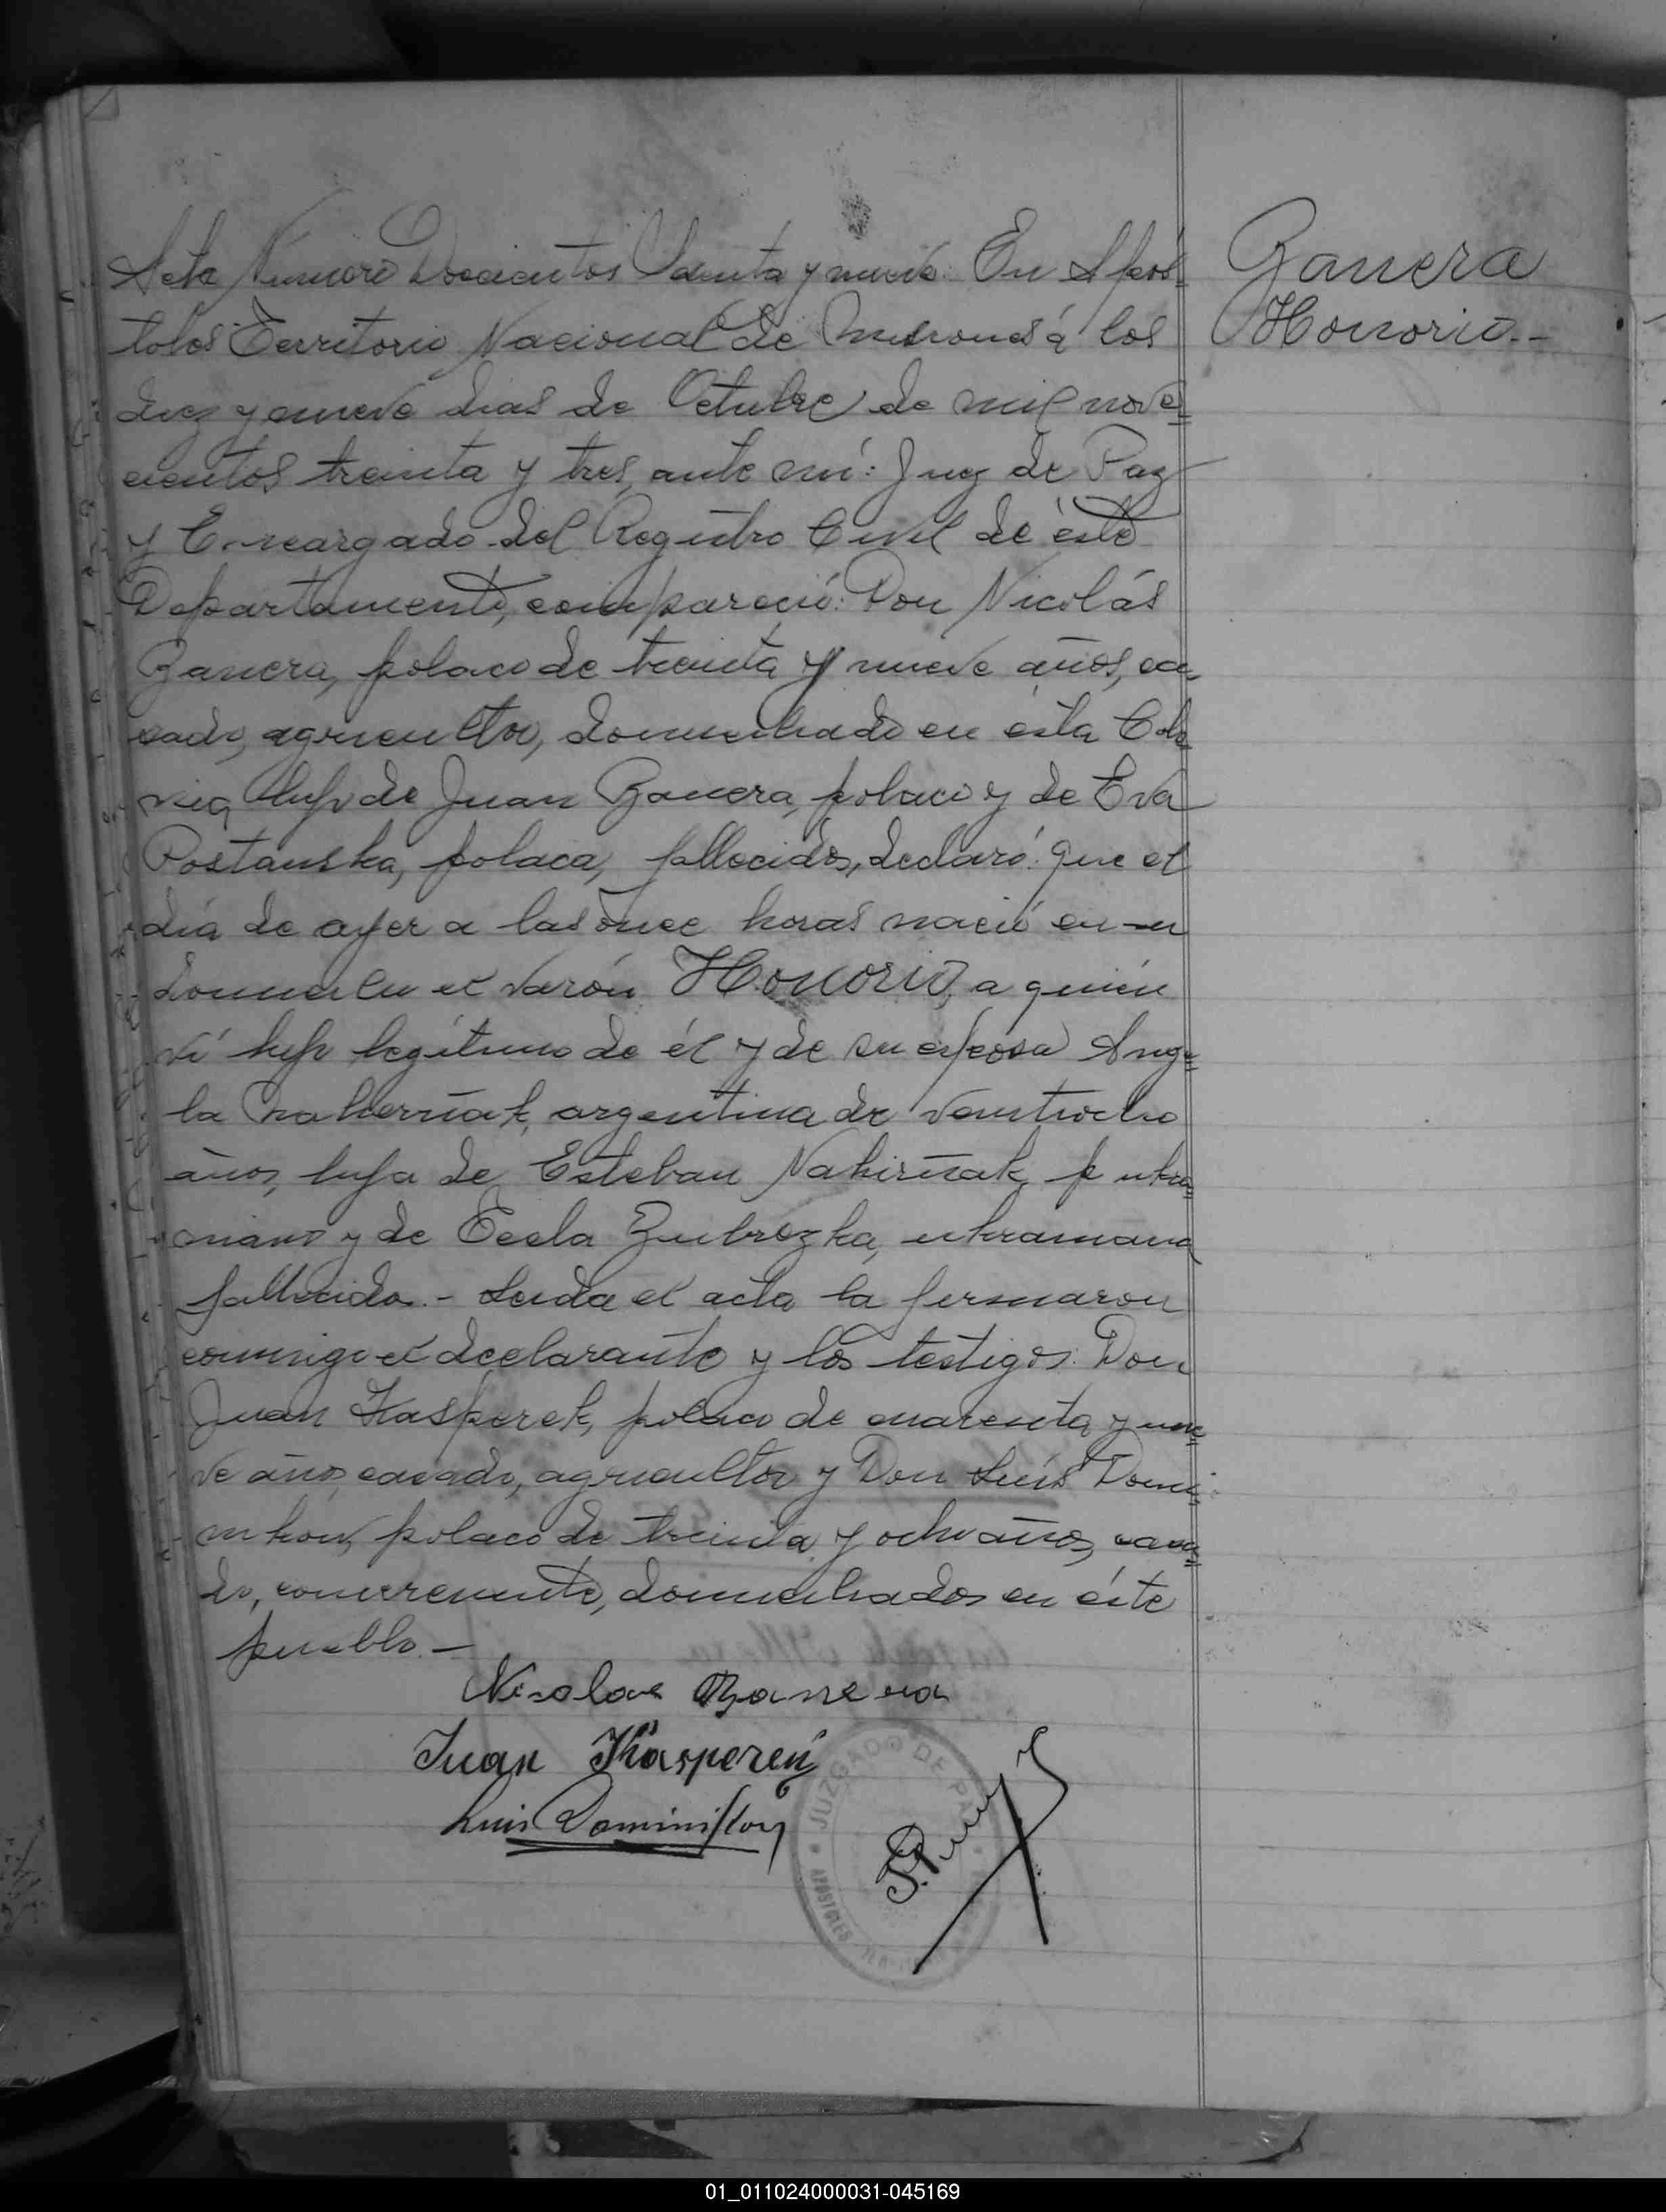 Acta Número Doscientos Setenta y nueve: En Após-
toles Territorio Nacional de Misiones á los
diez y nueve dias de Octubre de mil nove-
cientos treinta y tres, ante mí: Juez de Paz
y Encargado del Registro Civil de éste
Departamento, compareció: Don Nicolás
Banera, polaco de treinta y nueve años, ca-
sado, agricultor, domiciliado en esta Colo-
nia, hijo de Juan Banera, polaco y de Eva
Postanska, polaca, fallecidos, declaró: Que el
día de ayer a las once horas nació en su
domicilio el varón Honorio, a quién
ví hijo legítimo de él y de su esposa Ange-
la Nahirñak, argentina de veintiocho
años, hija de Esteban Nahirñak, ukra-
niano y de Tecla Zubrezka, ukraniana
fallecida.- Leida el acta la firmaron
conmigo el declarante y los testigos: Don
Juan Kasperek, polaco de cuarenta y nue-
ve años, casado, agricultor y Don Luis Domi-
nikow, polaco de treinta y ocho años, casa-
do, comerciante, domiciliados en éste
pueblo.-
Banera
Honorio.-
Nicolas Banera
Juan Kasperek
Luis Dominikow
JUZGADO DE PAZ
APOSTOLES
01_011024000031-045169